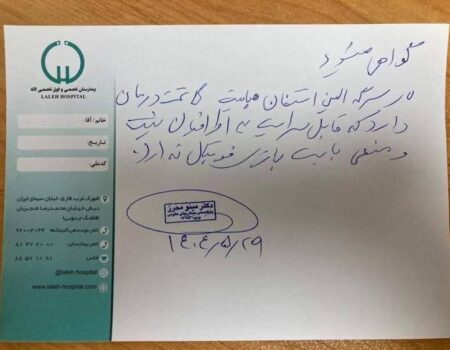 بیمارستان تخصصی و فوق تخصصی لاله
LALEH HOSPITAL
خانم/آقا:
تاریخ:
کدملی:
گواهی میشود
سرگه الین استفان هپاتیت B تحت درمان
دارد که قابل سرایت به اطرافیان نیست
و منعی بابت بازی فوتبال ندارد.
دکتر مینو محرز
۱۴۰۴/۵/۲۹
شهرک غرب، فاز ۵، خیابان سیمای ایران
نبش خیابان محمدرضا شجریان
(فلامک جنوبی)
تلفن نوبت‌دهی کلینیک‌ها: ۹۲۰۰۴۰۴۴
تلفن بیمارستان: ۸۱ ۴۷ ۲۰ ۰۰
فکس: ۸۸ ۵۷ ۱۰ ۸۱
@laleh.hospital
www.laleh-hospital.com